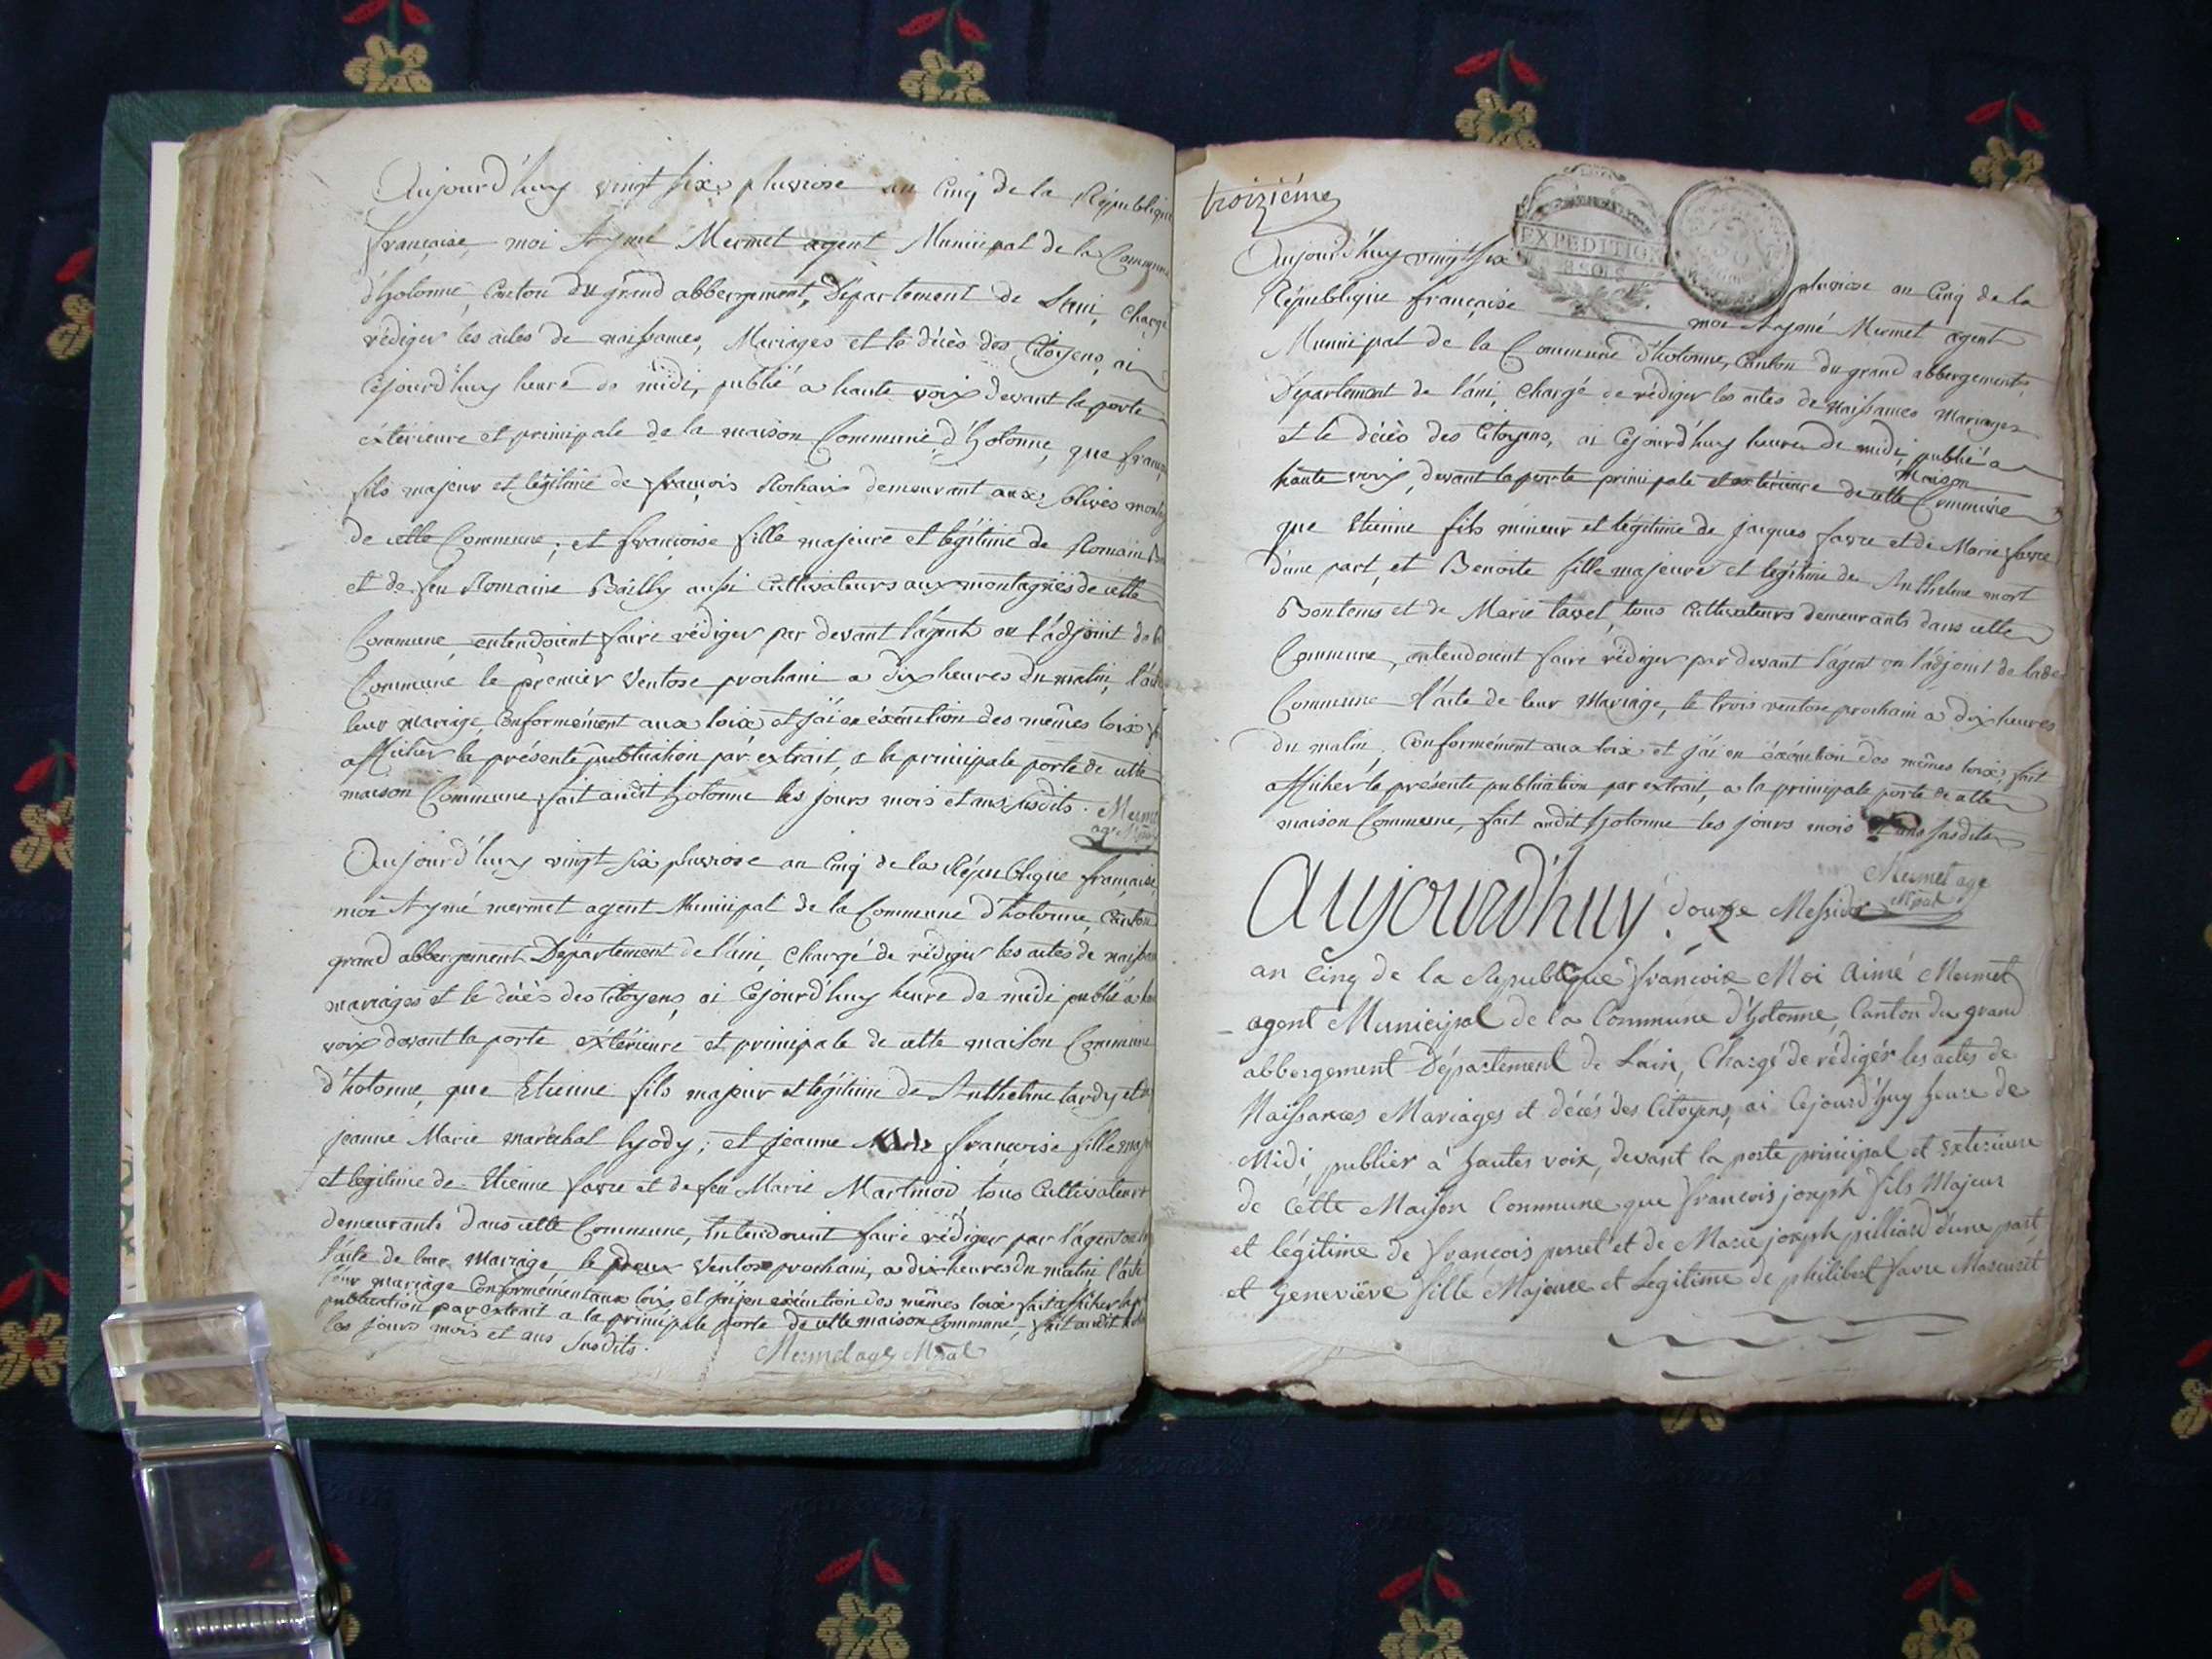 Aujourd'huy vingt six pluviose an Cinq de la République
française, moi Aymé Mermet agent Municipal de la Commune
d'hotonne, Canton du grand abbergement, Département de Lani, Chargé
rédiger les actes de naissances, Mariages et le décès des Citoyens, ai
Cejourd'huy heure de midi, publié a haute voix devant la porte
extérieure et principale de la maison Commune d'Hotonne, que
fils majeur et légitime de françois demeurant aux
de cette Commune; et françoise fille majeure et légitime de Romain
et de feu Romaine Bailly aussi Cultivateurs aux montagnes de cette
Commune, entendoient faire rédiger par devant l'agent ou l'adjoint de
Commune le premier Ventose prochain a dix heures du matin, l'acte
leur mariage, Conformément aux loix, et j'ai en éxécution des mêmes loix
afficher la présente publication par extrait, a la principale porte de cette
maison Commune, fait audit hotonne les jours mois et ans susdits.
Aujourd'huy vingt six pluviose an Cinq de la République française,
moi Aymé mermet agent Municipal de la Commune d'hotonne, Canton
grand abbergement Département de l'ani, Chargé de rédiger les actes de
mariages et le décès des Citoyens, ai Cejourd'huy heure de midi publié a
voix devant la porte éxtérieure et principale de cette maison Commune
d'hotonne, que Etienne fils majeur et légitime de Anthelme tardy et
jeanne Marie maréchal Lyody; et jeanne françoise fille
et legitime de Etienne favre et de feu Marie Martinod, tous Cultivateurs
demeurants dans cette Commune, Entendoient faire rédiger par l'agent
l'acte de leur Mariage le deux Ventose prochain, a dix heures du matin l'acte
leur mariage Conformément aux loix, et j'ai en éxécution des mêmes loix fait afficher
publication par extrait a la principale porte de cette maison Commune, fait audit
les jours mois et ans susdits.
Mermet agt Mpal
troizième
EXPEDITION
Aujourd'huy vingt six pluviose an Cinq de la
République française moi Aymé Mermet agent
Municipal de la Commune d'hotonne, Canton du grand abbergement,
Département de l'ani, Chargé de rédiger les actes de naissances mariages
et le décès des Citoyens, ai Cejourd'huy heure de midi, publié a
haute voix, devant la porte principale et extérieure de cette Maison Commune
que Etienne fils mineur et légitime de jacques favre et de Marie favre
d'une part, et Benoite fille majeure et légitime de Anthelme mort
Bontems et de Marie tavel, tous Cultivateurs demeurants dans cette
Commune, entendoient faire rédiger par devant l'agent ou l'adjoint de lade
Commune l'acte de leur Mariage, le trois ventose prochain a dix heures
du matin, Conformément aux loix et j'ai en éxécution des mêmes loix, fait
afficher la présente publication par extrait, a la principale porte de cette
maison Commune, fait audit hotonne les jours mois et ans susdits
Mermet agt
Mpal
Aujourd'huy douze Messidor
an Cinq de la Republique françoise Moi Aimé Mermet
agent Municipal de la Commune d'Hotonne, Canton du grand
abbergement Département de Lain, Chargé de rédiger les actes de
Naissances Mariages et décés des Citoyens, ai Cejourd'huy heure de
Midi publier à hautes voix, devant la porte principal et exterieure
de Cette Maison Commune que françois joseph fils Majeur
et légitime de françois perret et de Marie joseph pilliard d'une part,
et Geneviève fille Majeure et Legitime de philibert favre